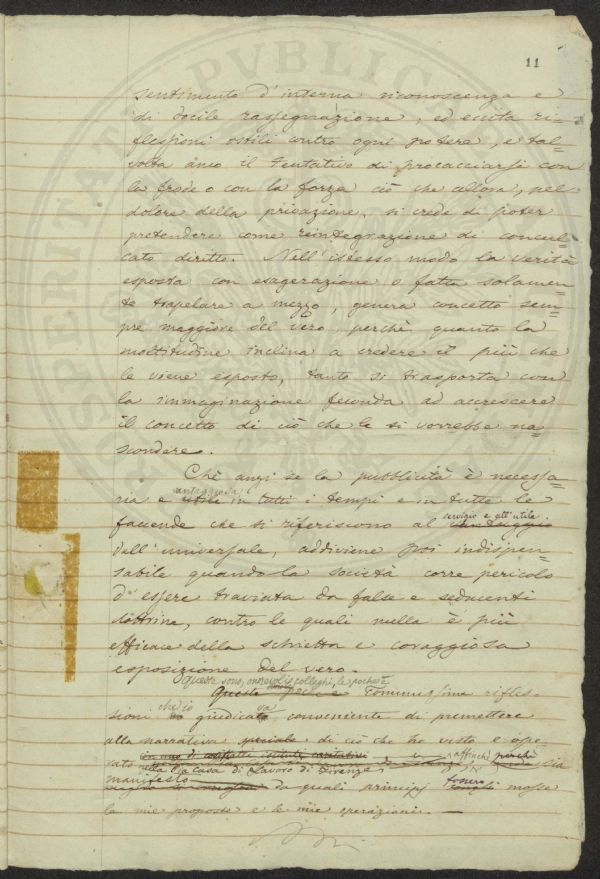 11
sentimento d'interna riconoscenza e
di docile rassegnazione, ed eccita ri=
flessioni ostili contro ogni potere, e tal=
volta anco il tentativo di procacciarsi con
la frode o con la forza ciò che allora, nel
dolore della privazione, si crede di poter
pretendere come reintegrazione di concul=
cato diritto. Nell'istesso modo la verità
esposta con esagerazione o fatta solamen=
te trapelare a mezzo, genera concetto sem=
pre maggiore del vero, perchè quanto la
moltitudine inclina a credere il più che
le viene esposto, tanto si trasporta con
la immaginazione feconda ad accrescere
il concetto di ciò che le si vorrebbe na=
scondere.
Chè anzi se la pubblicità è necessa=
vantaggiosa
ria e utile in tutti i tempi e in tutte le
servigio e all'utile
faccende che si riferiscono al vantaggio
dell'universale, addiviene poi indispen=
sabile quando la società corre pericolo
d'essere traviata da false e seducenti
dottrine, contro le quali nulla è più
efficace della schietta e coraggiosa
esposizione del vero.
Queste sono, onorevoli colleghi, le poche e
Queste poche e comunissime rifles=
che io va
sioni ho giudicato conveniente di premettere
alla narrativa speciale di ciò che ho visto e ope=
affinchè perchè
rato nella Pia Casa di Lavoro di Firenze, sia
manifesto fossero
da quali principj mosse
le mie proposte e le mie operazioni. —